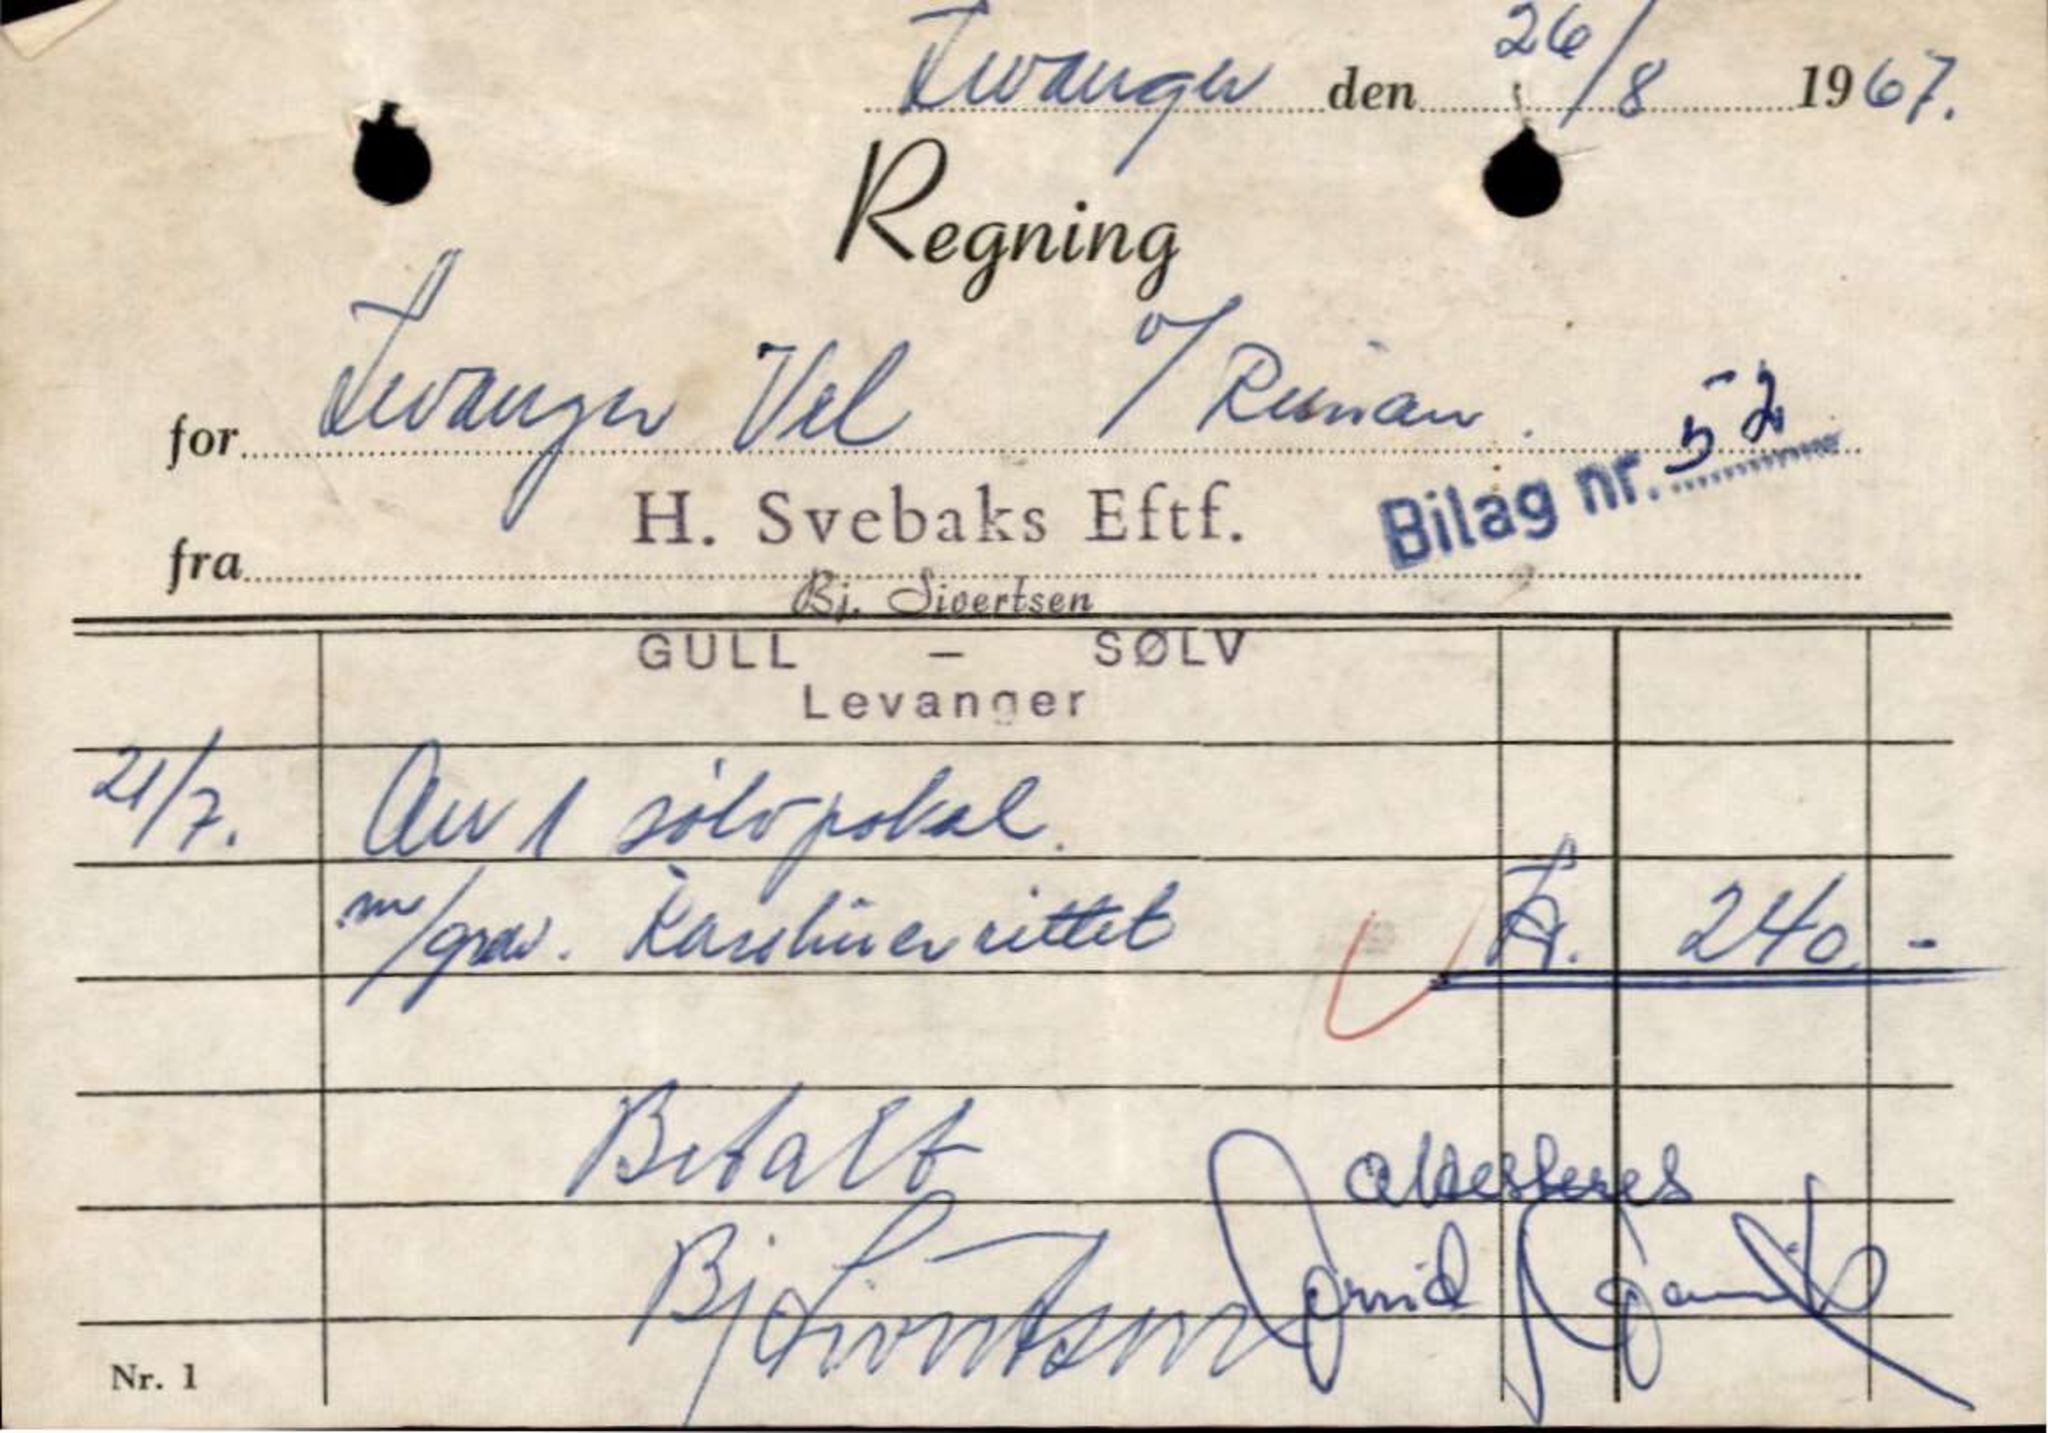 Levanger den 26/8 1967.
Regning
for Levanger Vel v/ Reinan.
Bilag nr. 52
fra H. Svebaks Eftf.
Bj. Sivertsen
GULL – SØLV
Levanger
21/7. Anv 1 sölvpokal.
m/grav. Karolinerrittet Kr. 240.-
Betalt
attesteres
Bj Sivertsen
Nr. 1